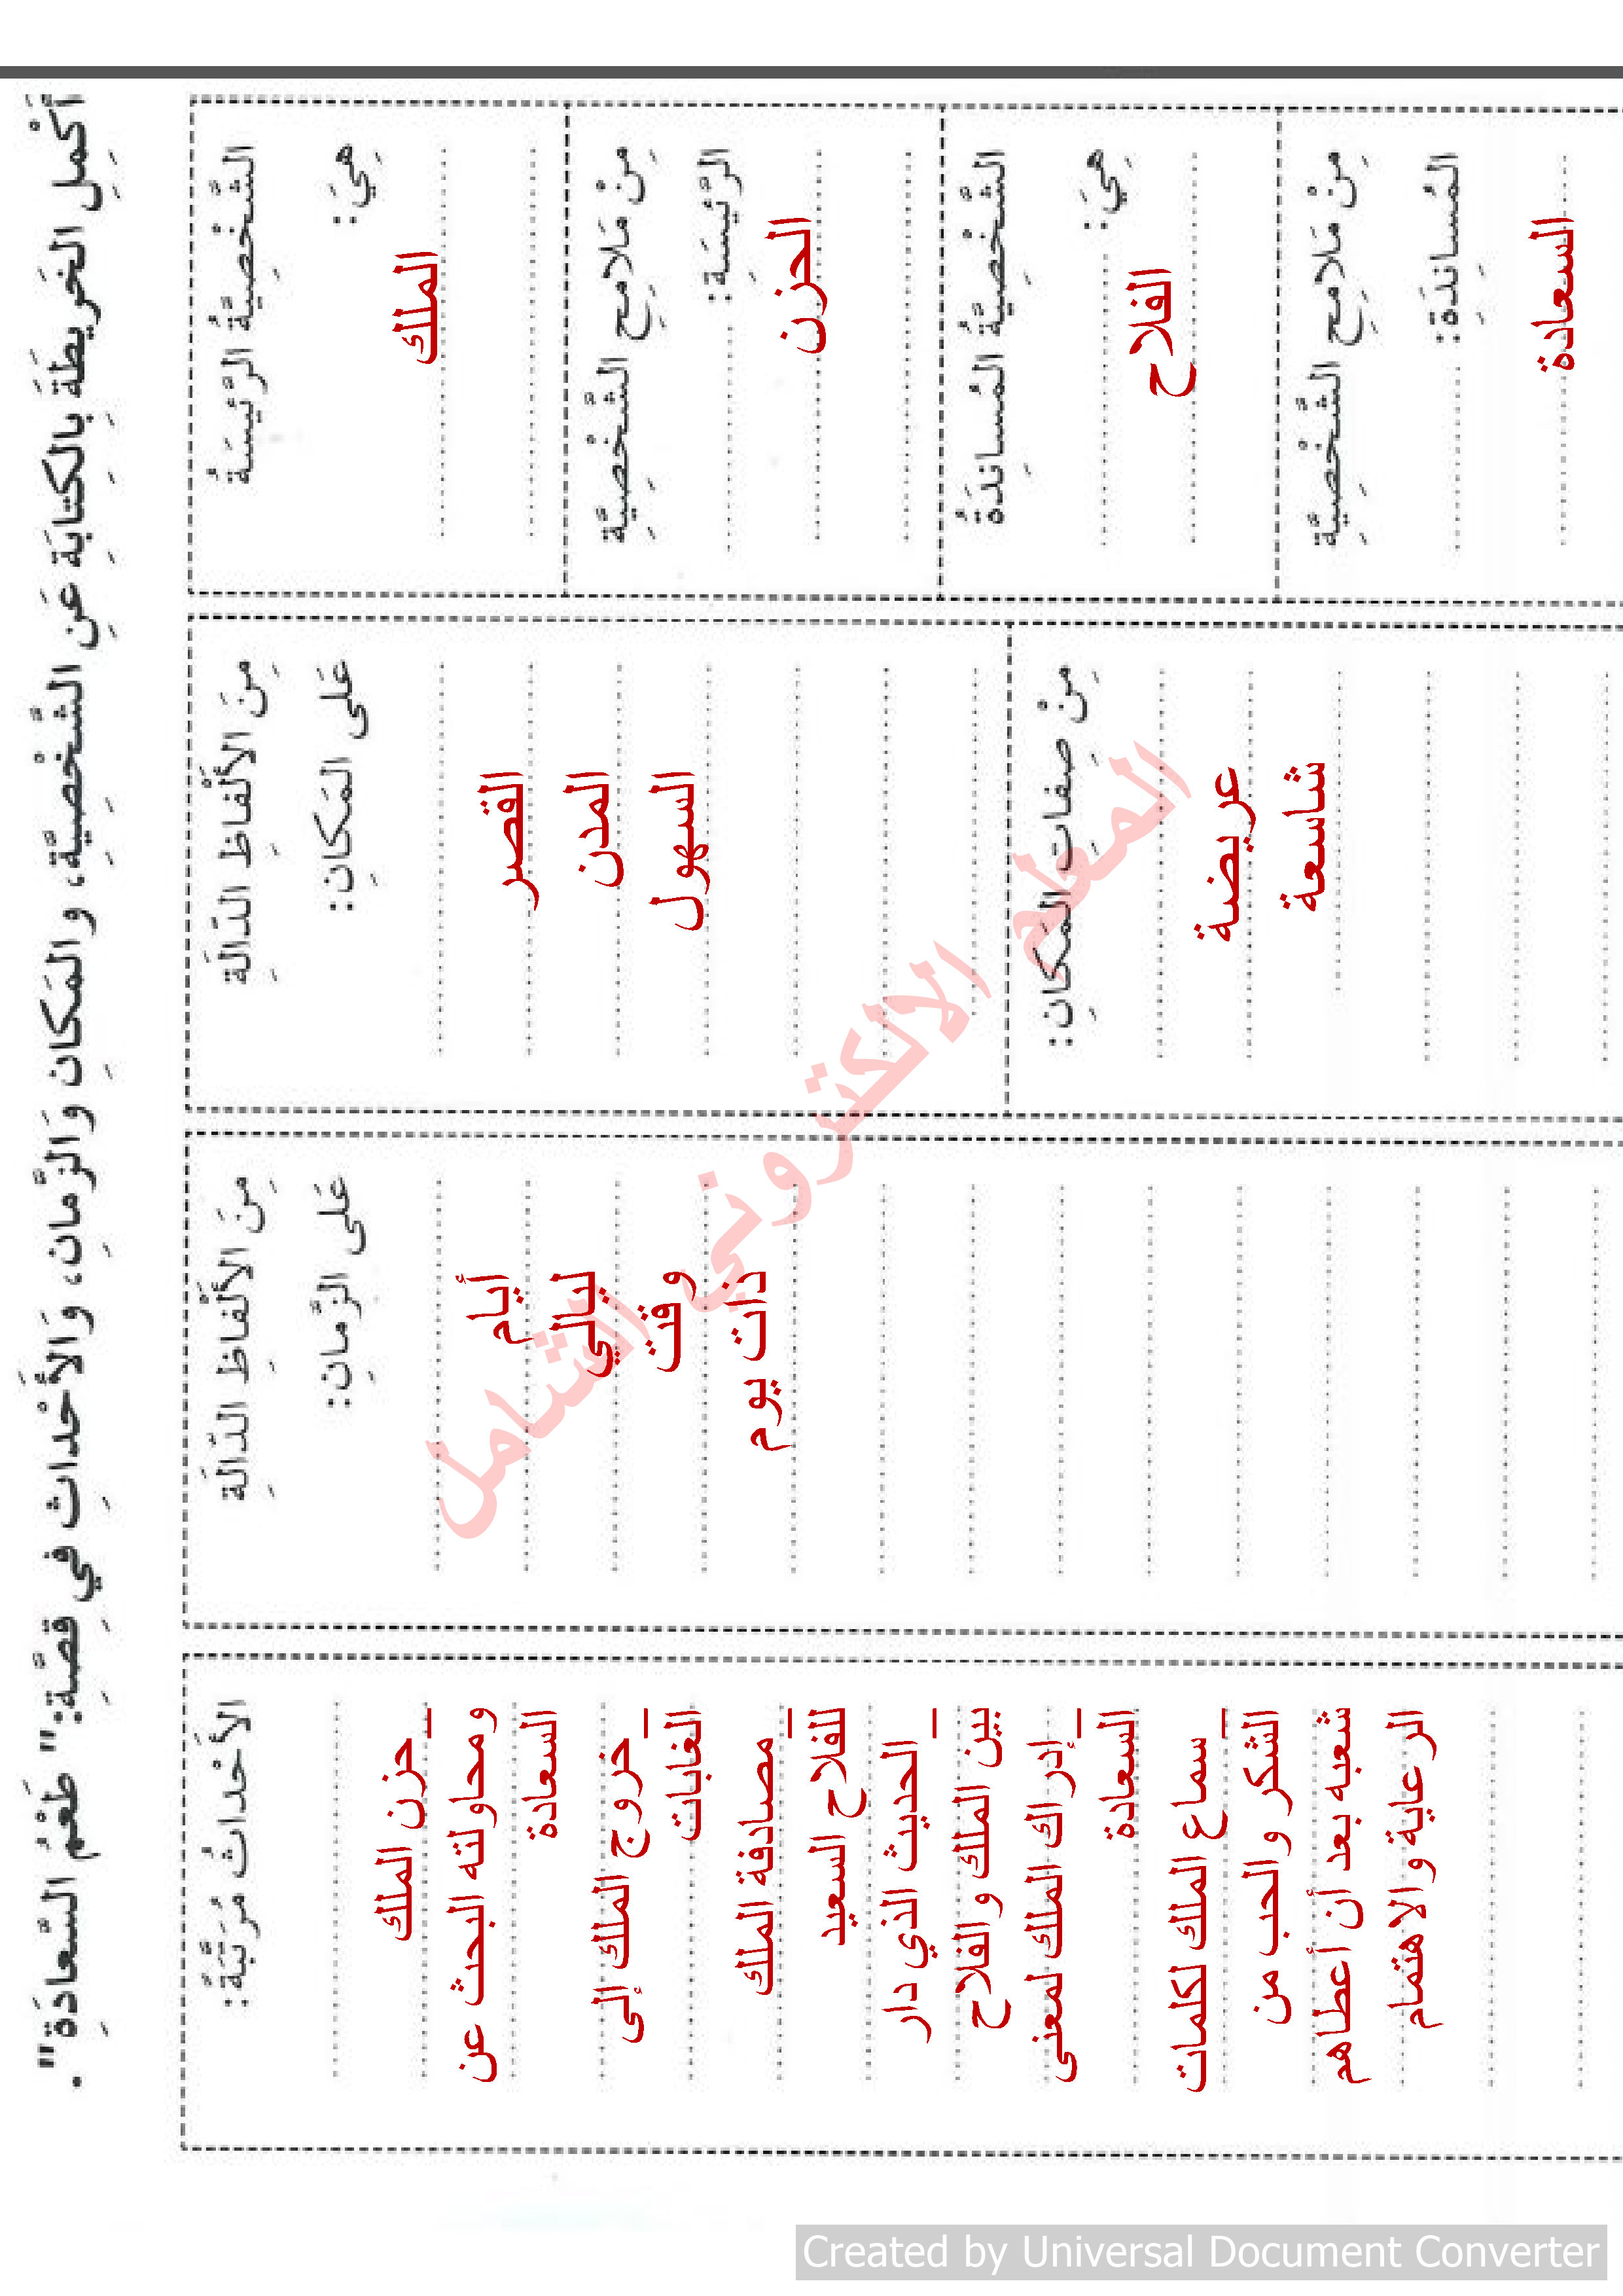 أَكْمِلِ الخَرِيطَةَ بِالكِتابَةِ عَنِ الشَّخْصِيَّةِ، والمَكانِ وَالزَّمانِ، وَالأَحْداثِ فِي قِصَّةِ: "طَعْمُ السَّعادَةِ".
الشَّخْصِيَّةُ الرَّئيسَةُ
هِيَ:
الملك
مِنْ مَلامِحِ الشَّخْصِيَّةِ
الرَّئيسَةِ:
الحزن
الشَّخْصِيَّةُ المُسانِدَةُ
هِيَ:
الفلاح
مِنْ مَلامِحِ الشَّخْصِيَّةِ
المُسانِدَةِ:
السعادة
مِنَ الأَلْفاظِ الدّالَّةِ
عَلى المَكانِ:
القصر
المدن
السهول
مِنْ صِفاتِ المَكانِ:
عريضة
شاسعة
مِنَ الأَلْفاظِ الدّالَّةِ
عَلى الزَّمانِ:
أيام
ليالي
وقت
ذات يوم
الأَحْداثُ مُرَتَّبَةً:
_ حزن الملك
ومحاولته البحث عن
السعادة
_ خروج الملك إلى
الغابات
_ مصادفة الملك
للفلاح السعيد
_ الحديث الذي دار
بين الملك والفلاح
_ إدراك الملك لمعنى
السعادة
_ سماع الملك لكلمات
الشكر والحب من
شعبه بعد أن أعطاهم
الرعاية والاهتمام
المعلم الالكتروني الشامل
Created by Universal Document Converter